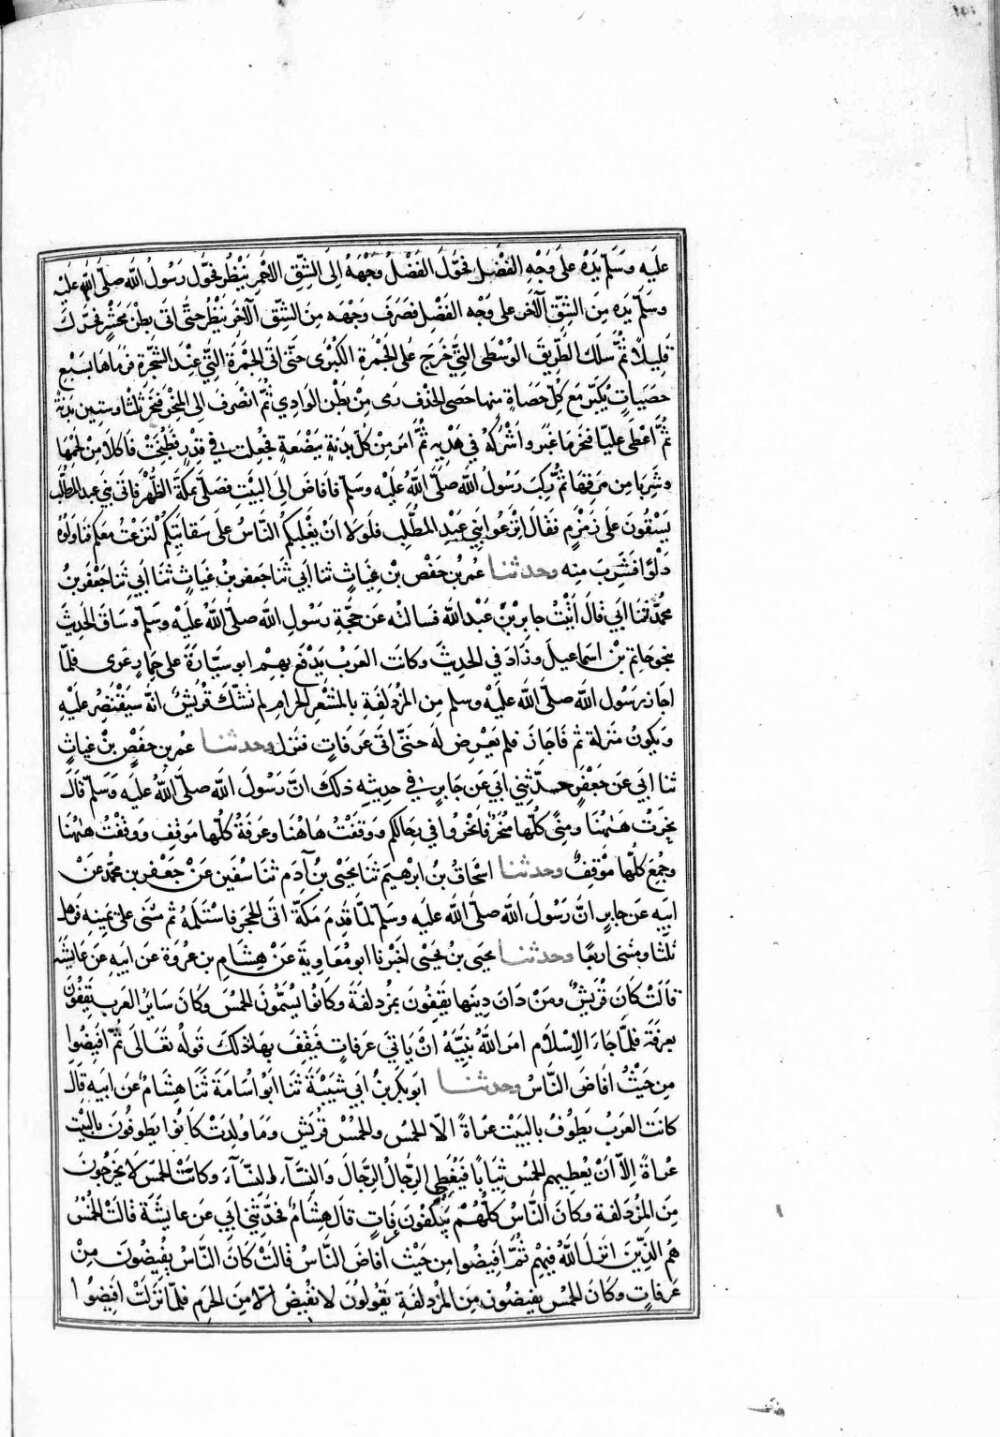 عليه وسلم يده على وجه الفضل فحول الفضل وجهه الى الشق الاخر ينظر فحول رسول الله صلى الله عليه
وسلم يده من الشق الآخر على وجه الفضل فصرف وجهه من الشق الآخر ينظر حتى اتى بطن محسر فحرك
قليلا ثم سلك الطريق الوسطى التي خرج على الجمرة الكبرى حتى اتى الجمرة التي عند الشجرة فرماها بسبع
حصيات يكبر مع كل حصاة منها حصى الخذف رمى من بطن الوادي ثم انصرف الى المنحر فنحر ثلثا وستين بدنة
ثم اعطى عليا فنحر ما غبر واشركه في هديه ثم امر من كل بدنة ببضعة فجعلت في قدر فطبخت فاكلا من لحمها
وشربا من مرقها ثم ركب رسول الله صلى الله عليه وسلم فافاض الى البيت فصلى بمكة الظهر فاتى بني عبد المطلب
يسقون على زمزم فقال انزعوا بني عبد المطلب فلولا ان يغلبكم الناس على سقايتكم لنزعت معكم فناولوه
دلوا فشرب منه وحدثنا عمر بن حفص بن غياث ثنا ابي ثنا جعفر بن غياث ثنا ابي ثنا جعفر بن
محمد ثنا ابي قال اتيت جابر بن عبد الله فسالته عن حجة رسول الله صلى الله عليه وسلم وساق الحديث
بنحو حاتم بن اسماعيل وزاد في الحديث وكانت العرب يدفع بهم ابو سيارة على حمار عرى فلما
اجاز رسول الله صلى الله عليه وسلم من المزدلفة بالمشعر الحرام لم تشك قريش انه سيقتصر عليه
ويكون منزله ثم فاجاز فلم يعرض له حتى اتى عرفات فنزل وحدثنا عمر بن حفص بن غياث
ثنا ابي عن جعفر حدثني ابي عن جابر في حديثه ذلك ان رسول الله صلى الله عليه وسلم قال
نحرت ههنا ومنى كلها منحر فانحروا في رحالكم ووقفت هاهنا وعرفة كلها موقف ووقفت ههنا
وجمع كلها موقف وحدثنا اسحاق بن ابرهيم ثنا يحيى بن آدم ثنا سفين عن جعفر بن محمد عن
ابيه عن جابر ان رسول الله صلى الله عليه وسلم لما قدم مكة اتى الحجر فاستلمه ثم مشى على يمينه فرمل
ثلثا ومشى اربعا وحدثنا يحيى بن يحيى اخبرنا ابو معاوية عن هشام بن عروة عن ابيه عن عايشة
قالت كان قريش ومن دان دينها يقفون بمزدلفة وكانوا يسمون الحمس وكان ساير العرب يقفون
بعرفة فلما جاء الاسلام امر الله نبيه ان ياتي عرفات فيقف بها فذلك قوله تعالى ثم افيضوا
من حيث افاض الناس وحدثنا ابو بكر بن ابي شيبة ثنا ابو اسامة ثنا هشام عن ابيه قال
كانت العرب يطوف بالبيت عراة الا الحمس والحمس قريش وما ولدت كانوا يطوفون بالبيت
عراة الا ان يعطيهم الحمس ثيابا فيعطي الرجال الرجال والنسآء النسآء وكانت الحمس لا يخرجون
من المزدلفة وكان الناس كلهم يبلغون عرفات قال هشام فحدثني ابي عن عايشة قالت الحمس
هم الذين انزل الله فيهم ثم افيضوا من حيث افاض الناس قالت كان الناس يفيضون من
عرفات وكان الحمس يفيضون من المزدلفة يقولون لا نفيض الا من الحرم فلما نزلت افيضوا